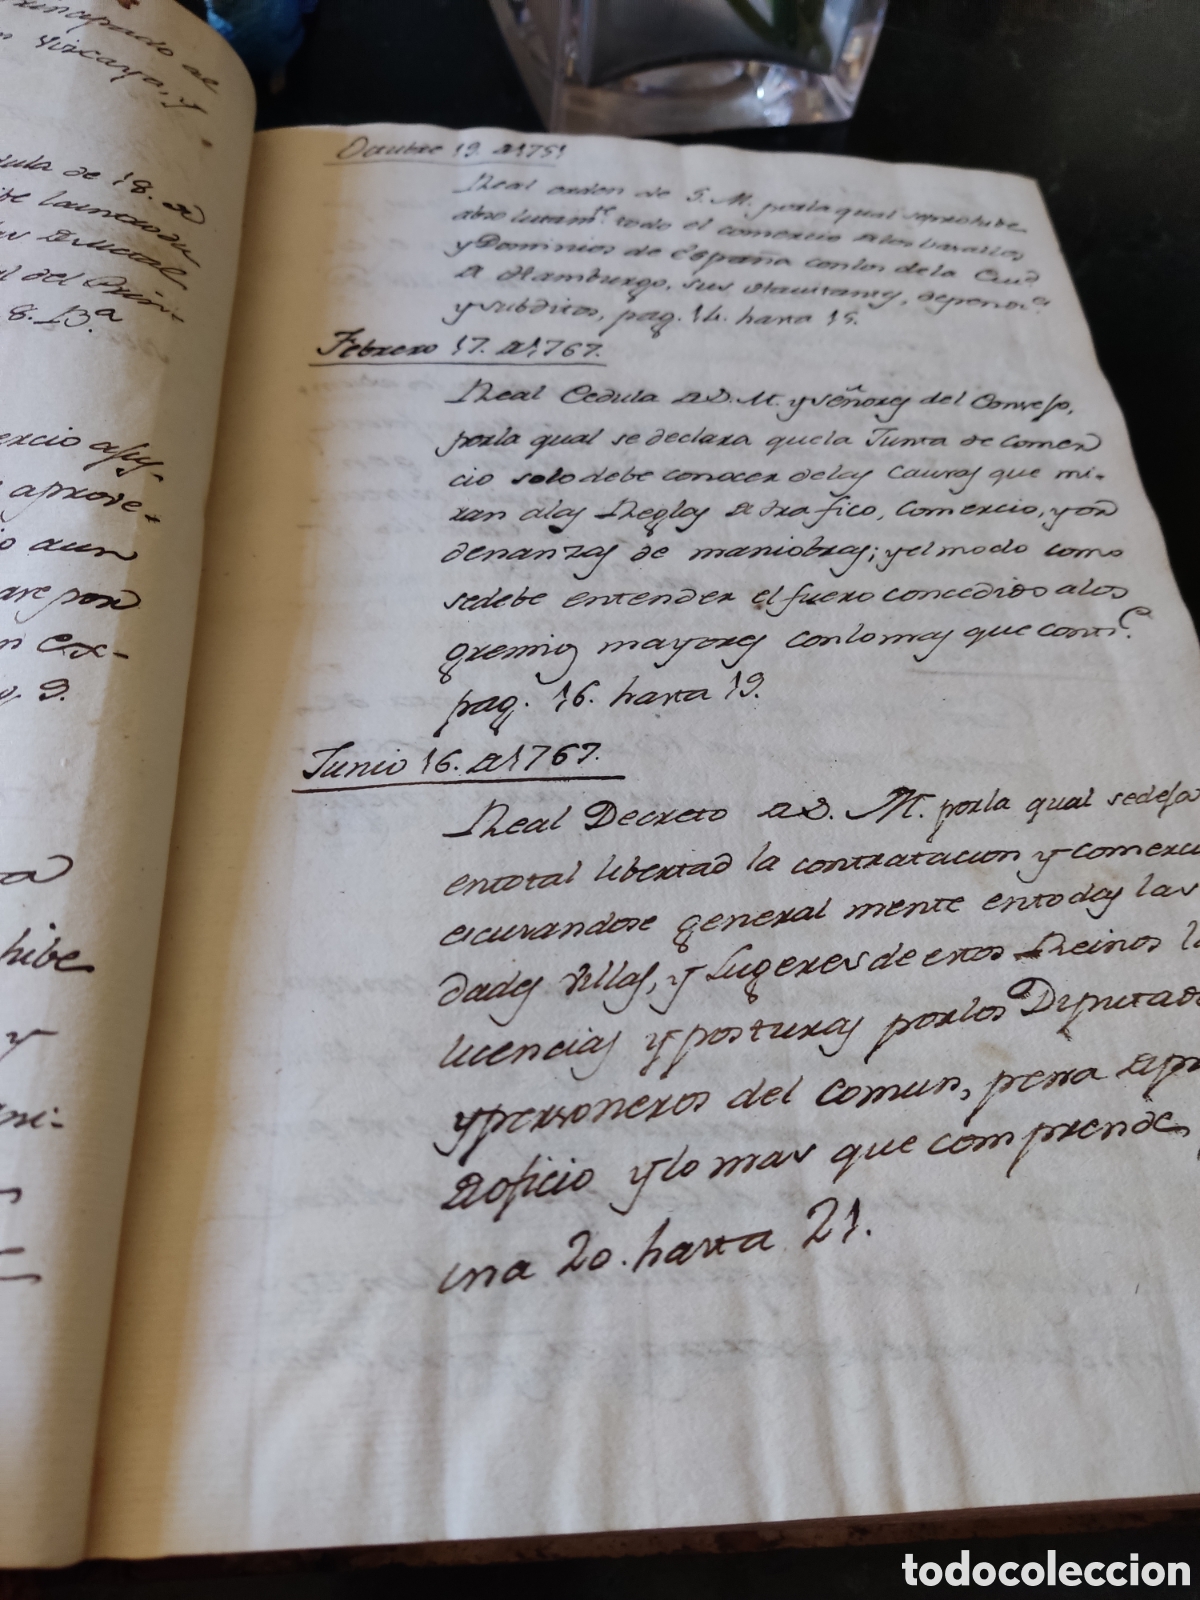 Principado al
Vizcaya, y
dula de 18. de
be la
del Prin-
8. 13.ª
ercio asy
aprove-
o aun
are por
n ex-
9.
hibe
y
Octubre 19. de 1751
Real orden de S. M. por la qual se prohibe
absolutam.te todo el comercio de los basallos
y Dominios de España con los de la Ciud
de Hamburgo, sus Havitantes, depend.s
y subditos, pag. 14. hasta 15.
Febrero 17. de 1767.
Real Cedula de S. M. y Señores del Consejo,
por la qual se declara que la Junta de Comer
cio solo debe conocer de las causas que mi-
ran a las Reglas de trafico, Comercio, y or
denanzas de maniobras; y el modo como
se debe entender el fuero concedido a los
gremios mayores con lo mas que conti.e
pag. 16. hasta 19.
Junio 16. de 1767.
Real Decreto de S. M. por la qual se deja
en total libertad la contratacion y comerci
escusandose general mente en todas las
dades Villas, y Lugeres de estos Reinos la
licencias y posturas por los Diputado
y personeros del comun, pena de pri
de oficio y lo mas que comprende
ina 20. hasta 21.
todocoleccion